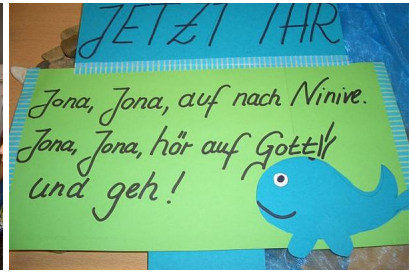 JETZT IHR
Jona, Jona, auf nach Ninive.
Jona, Jona, hör auf Gott!!
und geh!